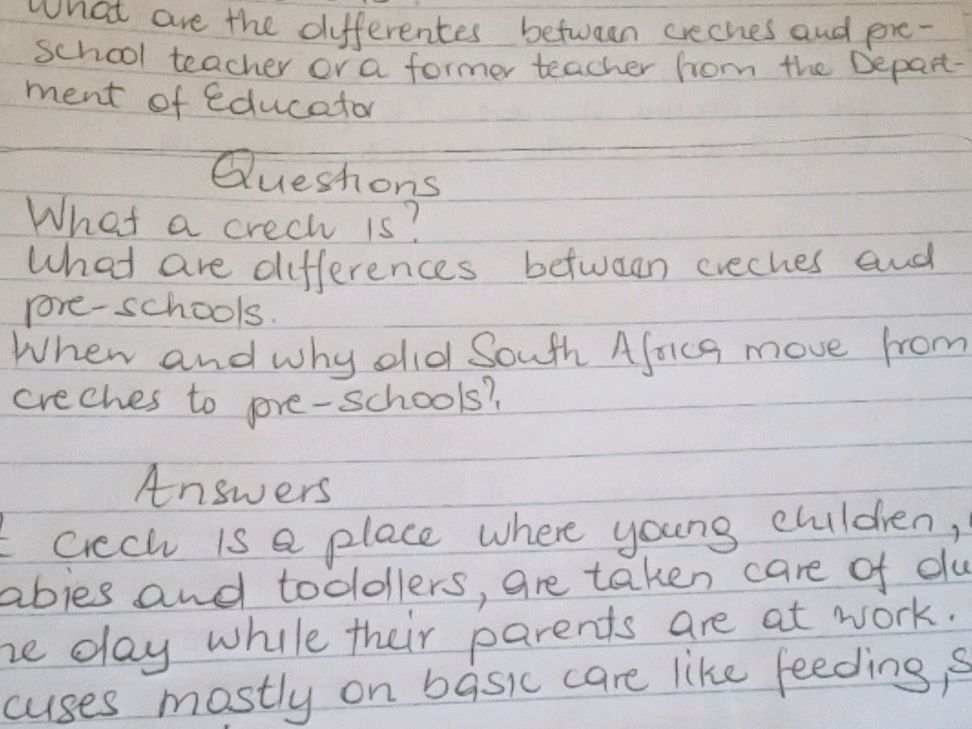 What are the differentes betwaen creches and pre-
school teacher or a former teacher from the Depart-
ment of Educator
Questions
What a crech is?
What are differences betwaen creches and
pre-schools.
When and why did South Africa move from
creches to pre-schools?
Answers
crech is a place where young children,
abies and toddlers, are taken care of du
he day while their parents are at work.
cuses mostly on basic care like feeding, s